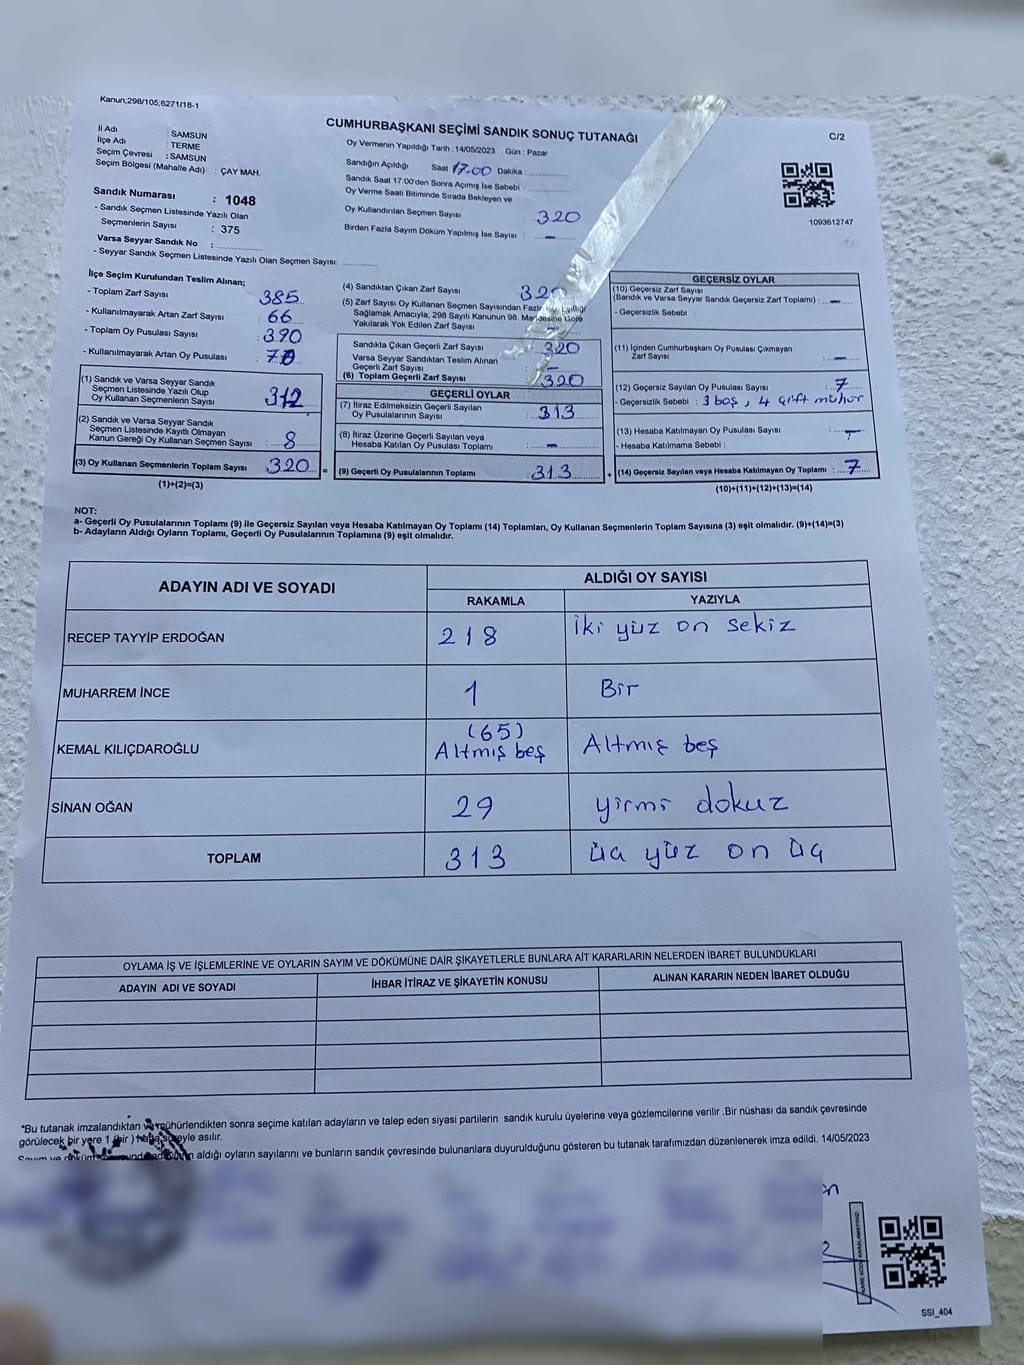 Kanun;298/105;6271/18-1
CUMHURBAŞKANI SEÇİMİ SANDIK SONUÇ TUTANAĞI
C/2
İl Adı : SAMSUN
İlçe Adı : TERME
Seçim Çevresi : SAMSUN
Seçim Bölgesi (Mahalle Adı) : ÇAY MAH.
Sandık Numarası : 1048
- Sandık Seçmen Listesinde Yazılı Olan
Seçmenlerin Sayısı : 375
Varsa Seyyar Sandık No :
- Seyyar Sandık Seçmen Listesinde Yazılı Olan Seçmen Sayısı:
Oy Vermenin Yapıldığı Tarih : 14/05/2023 Gün : Pazar
Sandığın Açıldığı Saat 17.00 Dakika :
Sandık Saat 17:00'den Sonra Açılmış İse Sebebi :
Oy Verme Saati Bitiminde Sırada Bekleyen ve
Oy Kullandırılan Seçmen Sayısı 320
Birden Fazla Sayım Döküm Yapılmış İse Sayısı : -
1093612747
İlçe Seçim Kurulundan Teslim Alınan;
- Toplam Zarf Sayısı 385
- Kullanılmayarak Artan Zarf Sayısı : 66
- Toplam Oy Pusulası Sayısı : 390
- Kullanılmayarak Artan Oy Pusulası : 70
(1) Sandık ve Varsa Seyyar Sandık
Seçmen Listesinde Yazılı Olup
Oy Kullanan Seçmenlerin Sayısı 312
(2) Sandık ve Varsa Seyyar Sandık
Seçmen Listesinde Kayıtlı Olmayan
Kanun Gereği Oy Kullanan Seçmen Sayısı : 8
(3) Oy Kullanan Seçmenlerin Toplam Sayısı : 320 =
(1)+(2)=(3)
(4) Sandıktan Çıkan Zarf Sayısı 320
(5) Zarf Sayısı Oy Kullanan Seçmen Sayısından Fazla
Sağlamak Amacıyla; 298 Sayılı Kanunun 98. Maddesine Göre
Yakılarak Yok Edilen Zarf Sayısı -
Sandıkta Çıkan Geçerli Zarf Sayısı : 320
Varsa Seyyar Sandıktan Teslim Alınan
Geçerli Zarf Sayısı : -
(6) Toplam Geçerli Zarf Sayısı : 320
GEÇERLİ OYLAR
(7) İtiraz Edilmeksizin Geçerli Sayılan
Oy Pusulalarının Sayısı : 313
(8) İtiraz Üzerine Geçerli Sayılan veya
Hesaba Katılan Oy Pusulası Toplamı : -
(9) Geçerli Oy Pusulalarının Toplamı : 313 +
GEÇERSİZ OYLAR
(10) Geçersiz Zarf Sayısı
(Sandık ve Varsa Seyyar Sandık Geçersiz Zarf Toplamı) : -
- Geçersizlik Sebebi :
(11) İçinden Cumhurbaşkanı Oy Pusulası Çıkmayan
Zarf Sayısı : -
(12) Geçersiz Sayılan Oy Pusulası Sayısı : 7
- Geçersizlik Sebebi : 3 boş, 4 çift mühür
(13) Hesaba Katılmayan Oy Pusulası Sayısı : -
- Hesaba Katılmama Sebebi :
(14) Geçersiz Sayılan veya Hesaba Katılmayan Oy Toplamı : 7
(10)+(11)+(12)+(13)=(14)
NOT:
a- Geçerli Oy Pusulalarının Toplamı (9) ile Geçersiz Sayılan veya Hesaba Katılmayan Oy Toplamı (14) Toplamları, Oy Kullanan Seçmenlerin Toplam Sayısına (3) eşit olmalıdır. (9)+(14)=(3)
b- Adayların Aldığı Oyların Toplamı, Geçerli Oy Pusulalarının Toplamına (9) eşit olmalıdır.
ADAYIN ADI VE SOYADI
ALDIĞI OY SAYISI
RAKAMLA YAZIYLA
RECEP TAYYİP ERDOĞAN 218 iki yüz on sekiz
MUHARREM İNCE 1 Bir
KEMAL KILIÇDAROĞLU (65) Altmış beş Altmış beş
SİNAN OĞAN 29 yirmi dokuz
TOPLAM 313 üç yüz on üç
OYLAMA İŞ VE İŞLEMLERİNE VE OYLARIN SAYIM VE DÖKÜMÜNE DAİR ŞİKAYETLERLE BUNLARA AİT KARARLARIN NELERDEN İBARET BULUNDUKLARI
ADAYIN ADI VE SOYADI İHBAR İTİRAZ VE ŞİKAYETİN KONUSU ALINAN KARARIN NEDEN İBARET OLDUĞU
*Bu tutanak imzalandıktan ve mühürlendikten sonra seçime katılan adayların ve talep eden siyasi partilerin sandık kurulu üyelerine veya gözlemcilerine verilir .Bir nüshası da sandık çevresinde
görülecek bir yere 1 (bir) hafta süreyle asılır.
Sayım ve döküm aldığı oyların sayılarını ve bunların sandık çevresinde bulunanlara duyurulduğunu gösteren bu tutanak tarafımızdan düzenlenerek imza edildi. 14/05/2023
KARE KODU KARALAMAYINIZ!
SSI_404